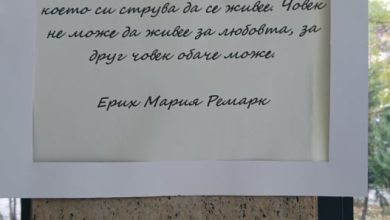 което си струва да се живее. Човек
не може да живее за любовта, за
друг човек обаче може.
Ерих Мария Ремарк